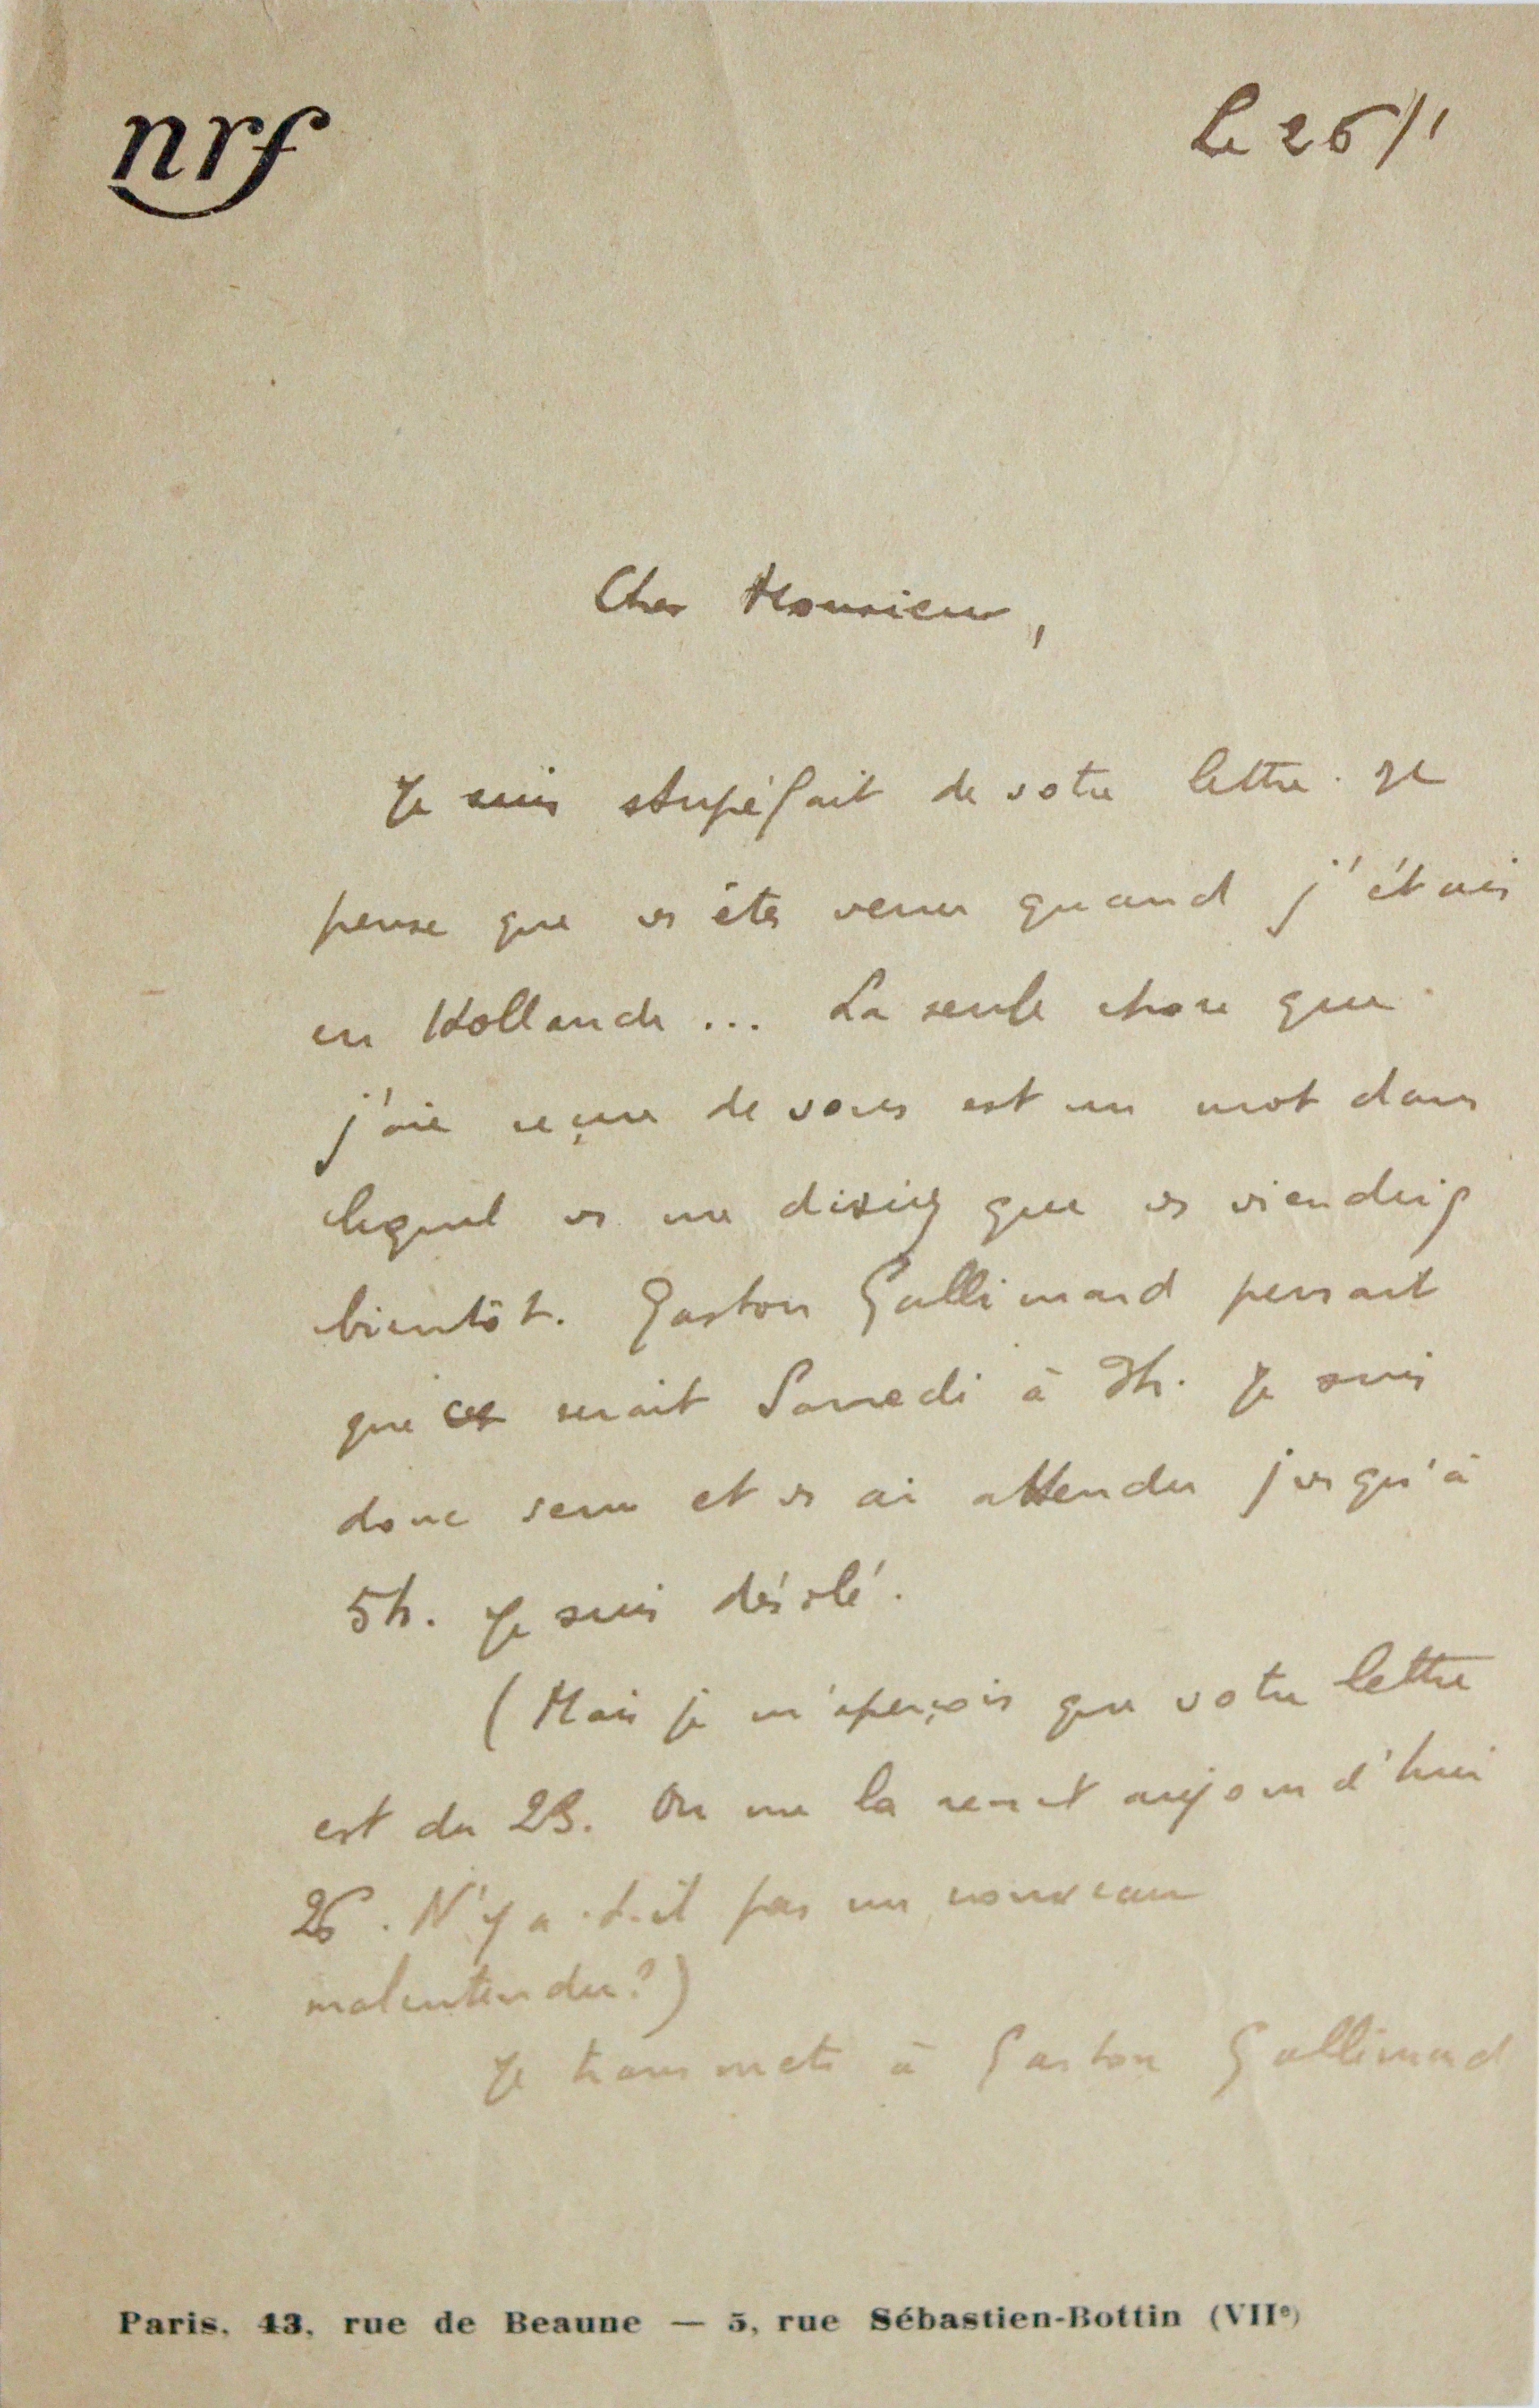 nrf
Le 26/1
Cher Monsieur,
Je suis stupéfait de votre lettre. Je
pense que vs êtes venu quand j'étais
en Hollande... La seule chose que
j'aie reçue de vous est un mot dans
lequel vs me disiez que vs viendriez
bientôt. Gaston Gallimard pensait
que ce serait Samedi à 3h. Je suis
donc venu et vs ai attendu jusqu'à
5h. Je suis désolé.
(Mais je m'aperçois que votre lettre
est du 23. On me la remet aujourd'hui
26. N'y a-t-il pas un nouveau
malentendu?)
Je transmets à Gaston Gallimard
Paris, 43, rue de Beaune — 5, rue Sébastien-Bottin (VIIe)